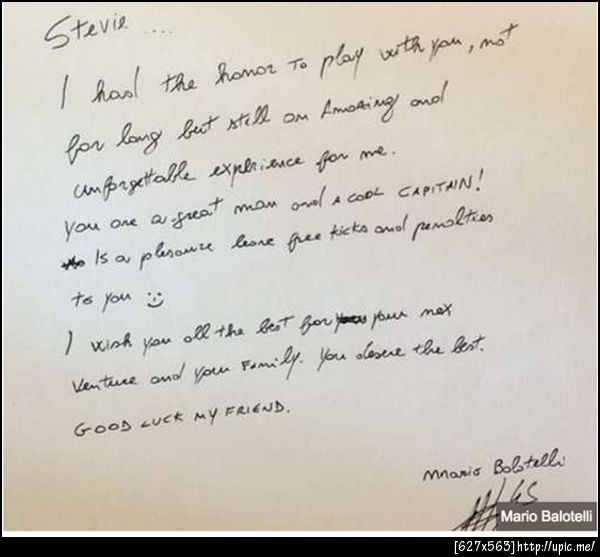 Stevie ....
I had the honor to play with you, not
for long but still an Amazing and
unforgettable experience for me.
you are a great man and a cool CAPITAIN!
Is a pleasure leave free kicks and penalties
to you :)
I wish you all the best for your nex
Venture and your Family. You deserve the best.
GOOD LUCK MY FRIEND.
Mario Balotelli
45
Mario Balotelli
[627x563]http://upic.me/